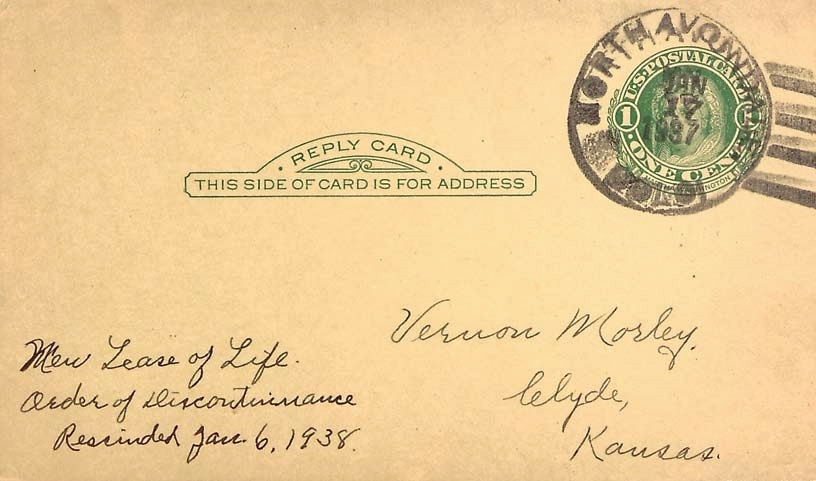 NORTH AVON
U.S. POSTAL CARD
JAN
17
1937
1
ONE CENT
REPLY CARD
THIS SIDE OF CARD IS FOR ADDRESS
Vernon Morley.
Clyde,
Kansas.
New Lease of Life.
Order of Discontinuance
Rescinded Jan. 6, 1938.